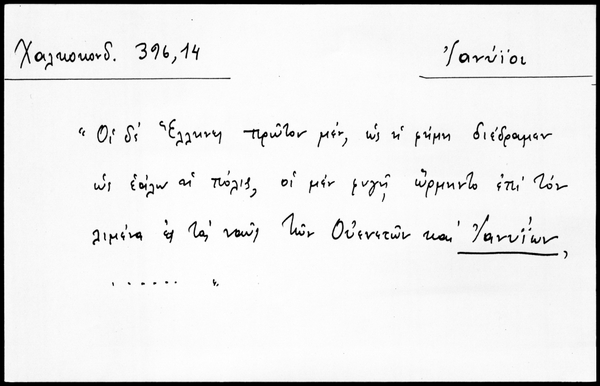 Χαλκοκονδ. 396,14
Ἰανύϊοι
“ Οἱ δὲ Ἕλληνες πρῶτον μέν, ὡς ἡ φήμη διέδραμεν
ὡς ἑάλω ἡ πόλις, οἱ μὲν φυγῇ ὥρμηντο ἐπὶ τὸν
λιμένα ἐς τὰς ναῦς τῶν Οὐενετῶν καὶ Ἰανυΐων,
....... „